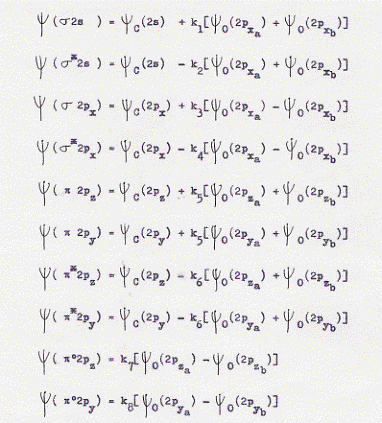 ψ(σ2s ) = ψC(2s) + k1[ψO(2pxa) + ψO(2pxb)]
ψ(σ*2s ) = ψC(2s) - k2[ψO(2pxa) + ψO(2pxb)]
ψ(σ 2px) = ψC(2px) + k3[ψO(2pxa) - ψO(2pxb)]
ψ(σ*2px) = ψC(2px) - k4[ψO(2pxa) - ψO(2pxb)]
ψ(π 2pz) = ψC(2pz) + k5[ψO(2pza) + ψO(2pzb)]
ψ(π 2py) = ψC(2py) + k5[ψO(2pya) + ψO(2pyb)]
ψ(π*2pz) = ψC(2pz) - k6[ψO(2pza) + ψO(2pzb)]
ψ(π*2py) = ψC(2py) - k6[ψO(2pya) + ψO(2pyb)]
ψ(π°2pz) = k7[ψO(2pza) -ψO(2pzb)]
ψ(π°2py) = k8[ψO(2pya) - ψO(2pyb)]